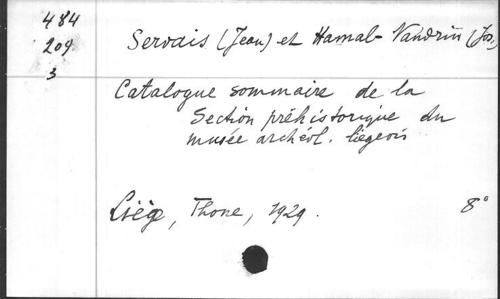 484
209
3
Servais (Jean) et Hamal-Nandrin (Jos.)
Catalogue sommaire de la
Section préhistorique du
musée archéol. liégeois
Liége, Thone, 1929.
8°